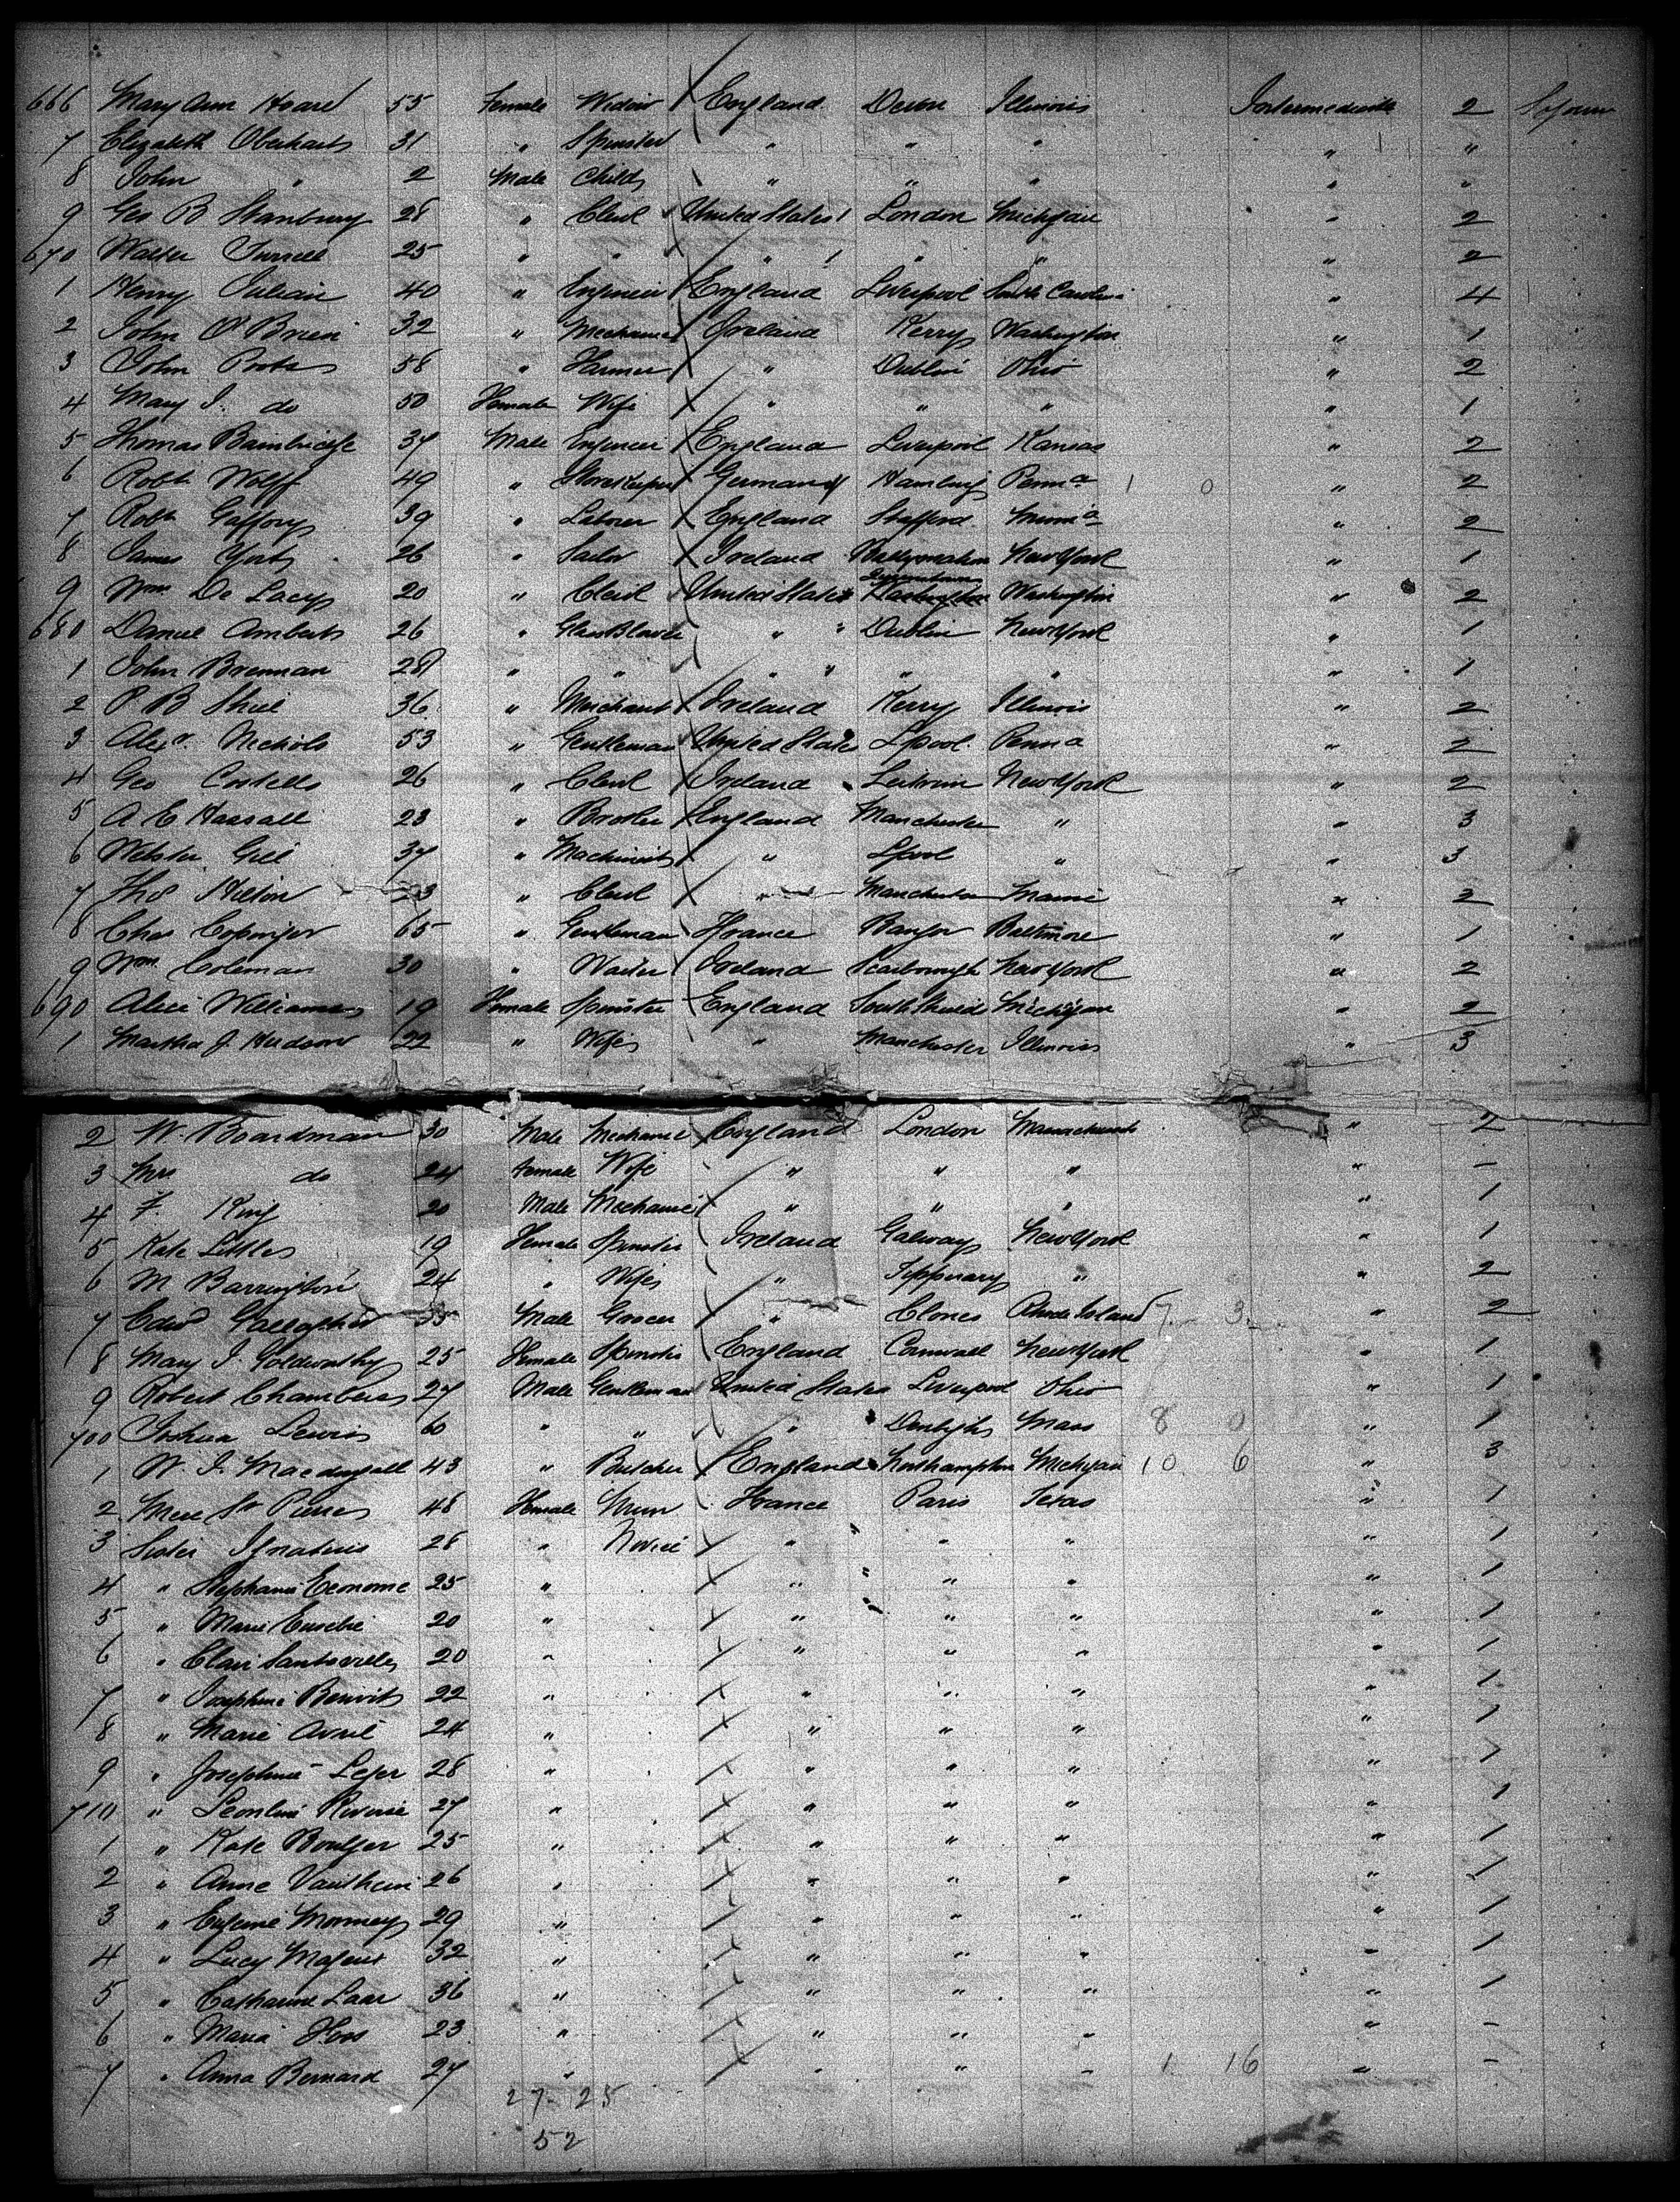 666 Mary Ann Hoare 55 Female Widow England Devon Illinois Intermediate 2 Sojourn
7 Elizabeth 31 " Spinster " " " " "
8 John " 2 Male Child " " " " "
9 Geo B Stanbury 28 " Clerk United States London Michigan " 2
670 Walter 25 " " " " " " 2
1 Henry Julian 40 " Engineer England Liverpool South Carolina " 4
2 John O'Brien 32 " Mechanic Ireland Kerry Washington " 1
3 John 58 " Farmer " Dublin Ohio " 2
4 Mary J. do 50 Female Wife " " " " 1
5 Thomas Bainbridge 37 Male Engineer England Liverpool Kansas " 2
6 Robt Wolff 49 " Storekeeper Germany Hamburg Penna 1 0 " 2
7 Robt 39 " Laborer England Stafford " 2
8 James 26 " Sailor Ireland New York " 1
9 Wm De Lacy 20 " Clerk United States Queenstown Washington " 2
680 Daniel 26 " Glass Blower " " Dublin New York " 1
1 John Brennan 28 " " " " " " " 1
2 P B Shiel 36 " Merchant Ireland Kerry Illinois " 2
3 Alexr. Nichols 53 " Gentleman United States Lpool Penna " 2
4 Geo Costello 26 " Clerk Ireland Leitrim New York " 2
5 A E Hassall 23 " Broker England Manchester " " 3
6 Webster Gill 37 " Machinist " Lpool " " 3
7 Thos Hilton 23 " Clerk " Manchester " 2
8 Chas Copinger 65 " Gentleman France Bangor Baltimore " 1
9 Wm Coleman 30 " Waiter Ireland Scarborough New York " 2
690 Alice Williams 19 Female Spinster England South Shields Michigan " 2
1 Martha J. Hudson 22 " Wife " Manchester Illinois " 3
2 W. Boardman 30 Male Mechanic England London Massachusets " 2
3 Mrs do 24 Female Wife " " " " -
4 F King 20 Male Mechanic " " " " 1
5 Kate Little 19 Female Spinster Ireland Galway New York " 1
6 M Barrington 24 " Wife " Tipperary " " 2
7 Edwd Gallagher 35 Male Grocer " Clones Rhode Island 7 3 " 2
8 Mary J. Goldworthy 25 Female Spinster England Cornwall New York " 1
9 Robert Chambers 27 Male Gentleman United States Liverpool Ohio " 1
700 Joshua Lewis 60 " " " Denbigh Mass 8 0 " 1
1 W. J. Macdougall 43 " Butcher England Northampton Michigan 10 6 " 3
2 Mere St Pierre 48 Female Nun France Paris Texas " 1
3 Sister Ignatius 28 " Novice " " " " 1
4 " Stephanie Econome 25 " " " " " 1
5 " Marie Eusebie 20 " " " " " 1
6 " Clair 20 " " " " " 1
7 " Josephine Benoit 22 " " " " " 1
8 " Marie Avril 24 " " " " " 1
9 " Josephine Leger 28 " " " " " 1
710 " Leontine 27 " " " " " 1
1 " Kate Boulger 25 " " " " " 1
2 " Anne 26 " " " " " 1
3 " Eugenie 29 " " " " " 1
4 " Lucy 32 " " " " " 1
5 " Catharine Laar 36 " " " " " 1
6 " Maria 23 " " " " " -
7 " Anna Bernard 27 " " " - 1 16 " -
27 - 25
52